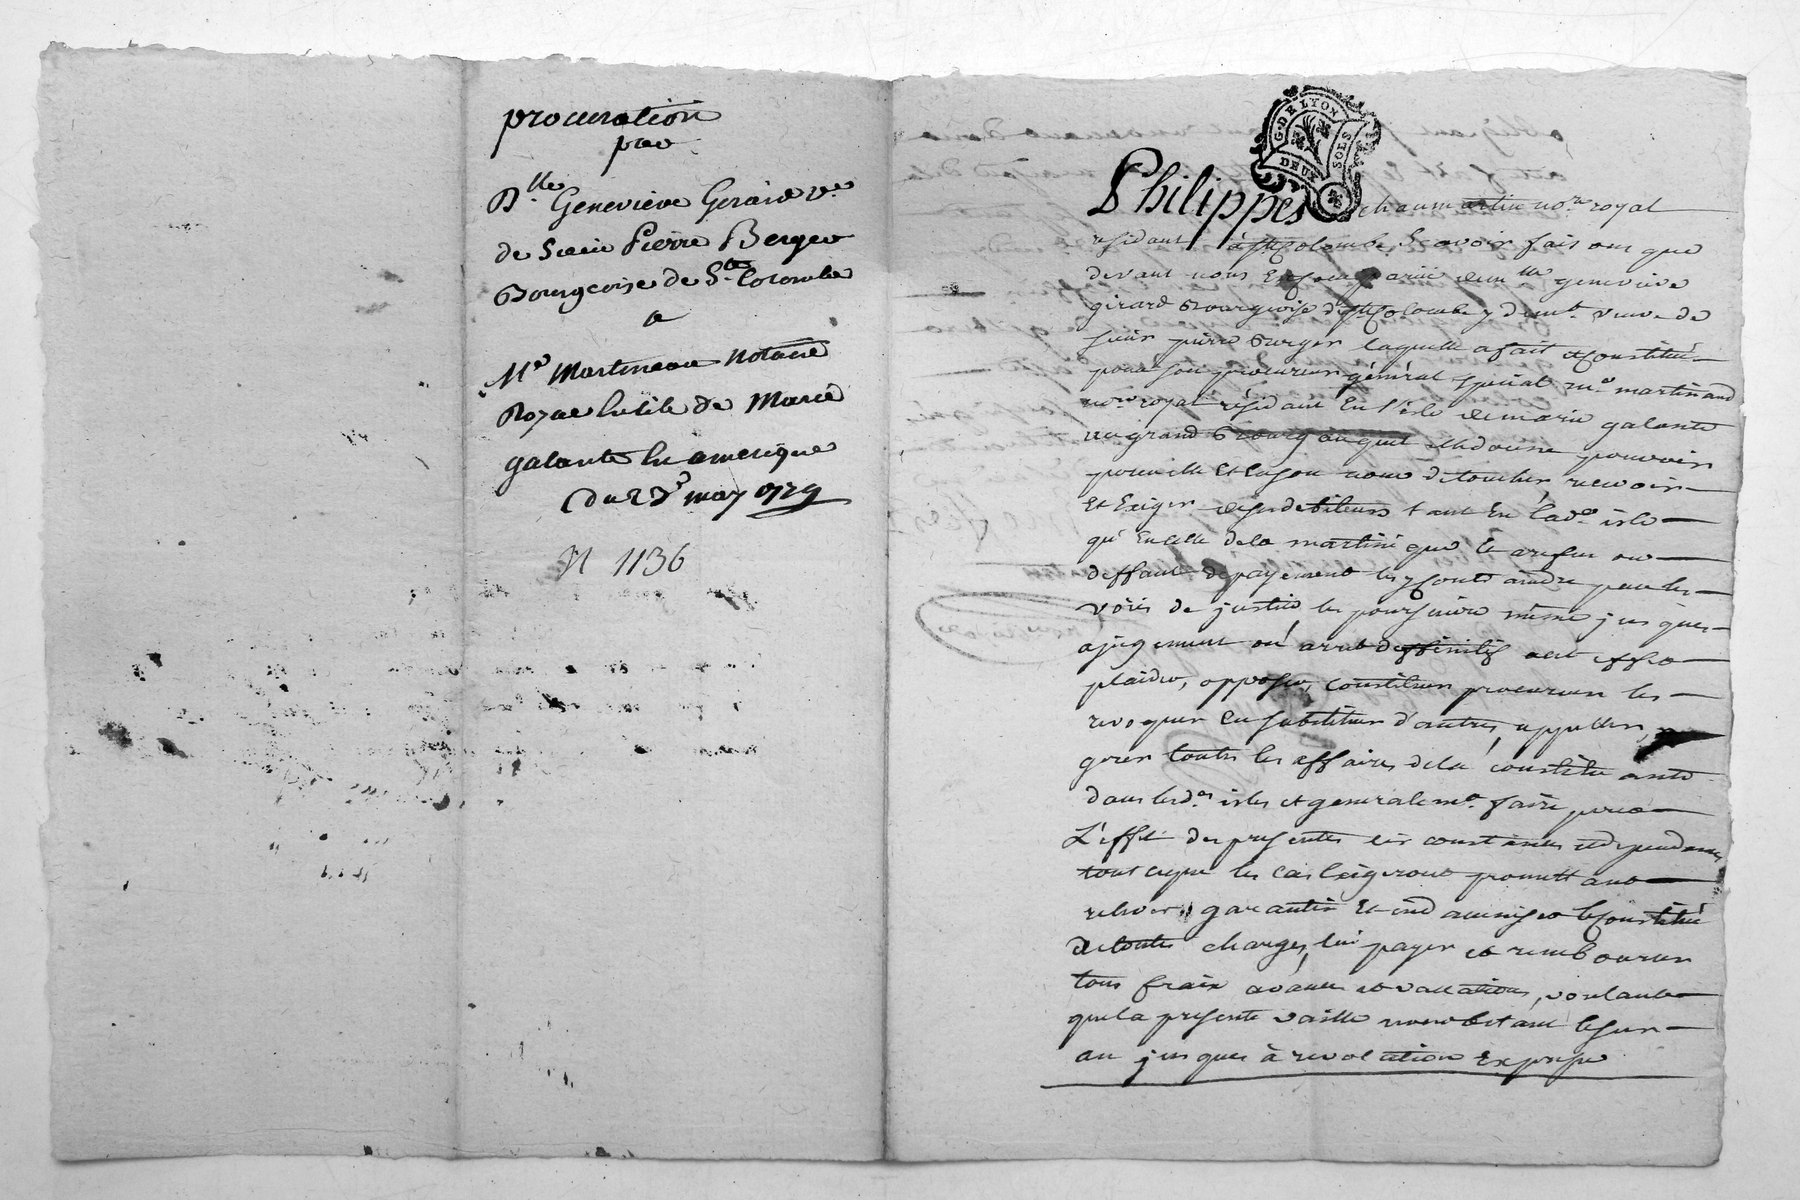 procuration
par
D.lle Genevieve Gerard v.e
de Sieur Pierre Berger
Bourgeoise de S.te Colombe
a
M.e Martineau Notaire
Royal en lile de Marie
galante en amerique
du 2 may 1729
N 1136
G. DE LYON
DEUX SOLS
Philippes chaumartin no.re royal
residant à S.te Colombe Scavoir fais ons que
devant nous dem.lle genevieve
girard Bourgeoise de S.te Colombe y dem.t veuve de
sieur pierre Burger laquelle a fait et constitué
pour son procureur général special m.e martinaud
no.re royal résidant En l'isle de marie galante
au grand Bourg auquel elle donne pouvoir
pour elle Et en son nom de toucher recevoir
Et Exiger de ses debiteurs tant En lad.e isle
qu'En celle de la martinique et au refus ou
deffaut de payement les y contraindre par les
voies de justice les poursuivre même jusques
a jugement ou arret deffinitif a cet effet
plaider, opposer, constituer procureur les
revoquer en substituer d'autres, appeller,
gerer toutes les affaires de la constituante
dans lesd.es isles et generalem.t faire pour
L'effet des presentes circonstances et dependances
tout ce que les cas Exigeront promettant
relever, garantir Et indamniser le constitué
de toutes charges, lui payer et rembourser
tous fraix avances et vaccations, voulant
que la presente vaille nonobstant le sur
an jusques à revocation Expresse